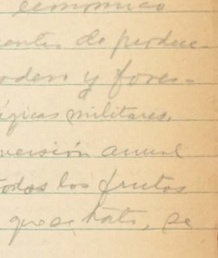 economico
entes de produc-
odero y fores-
égicas militares.
versión anual
todos los frutos
que se trata, se